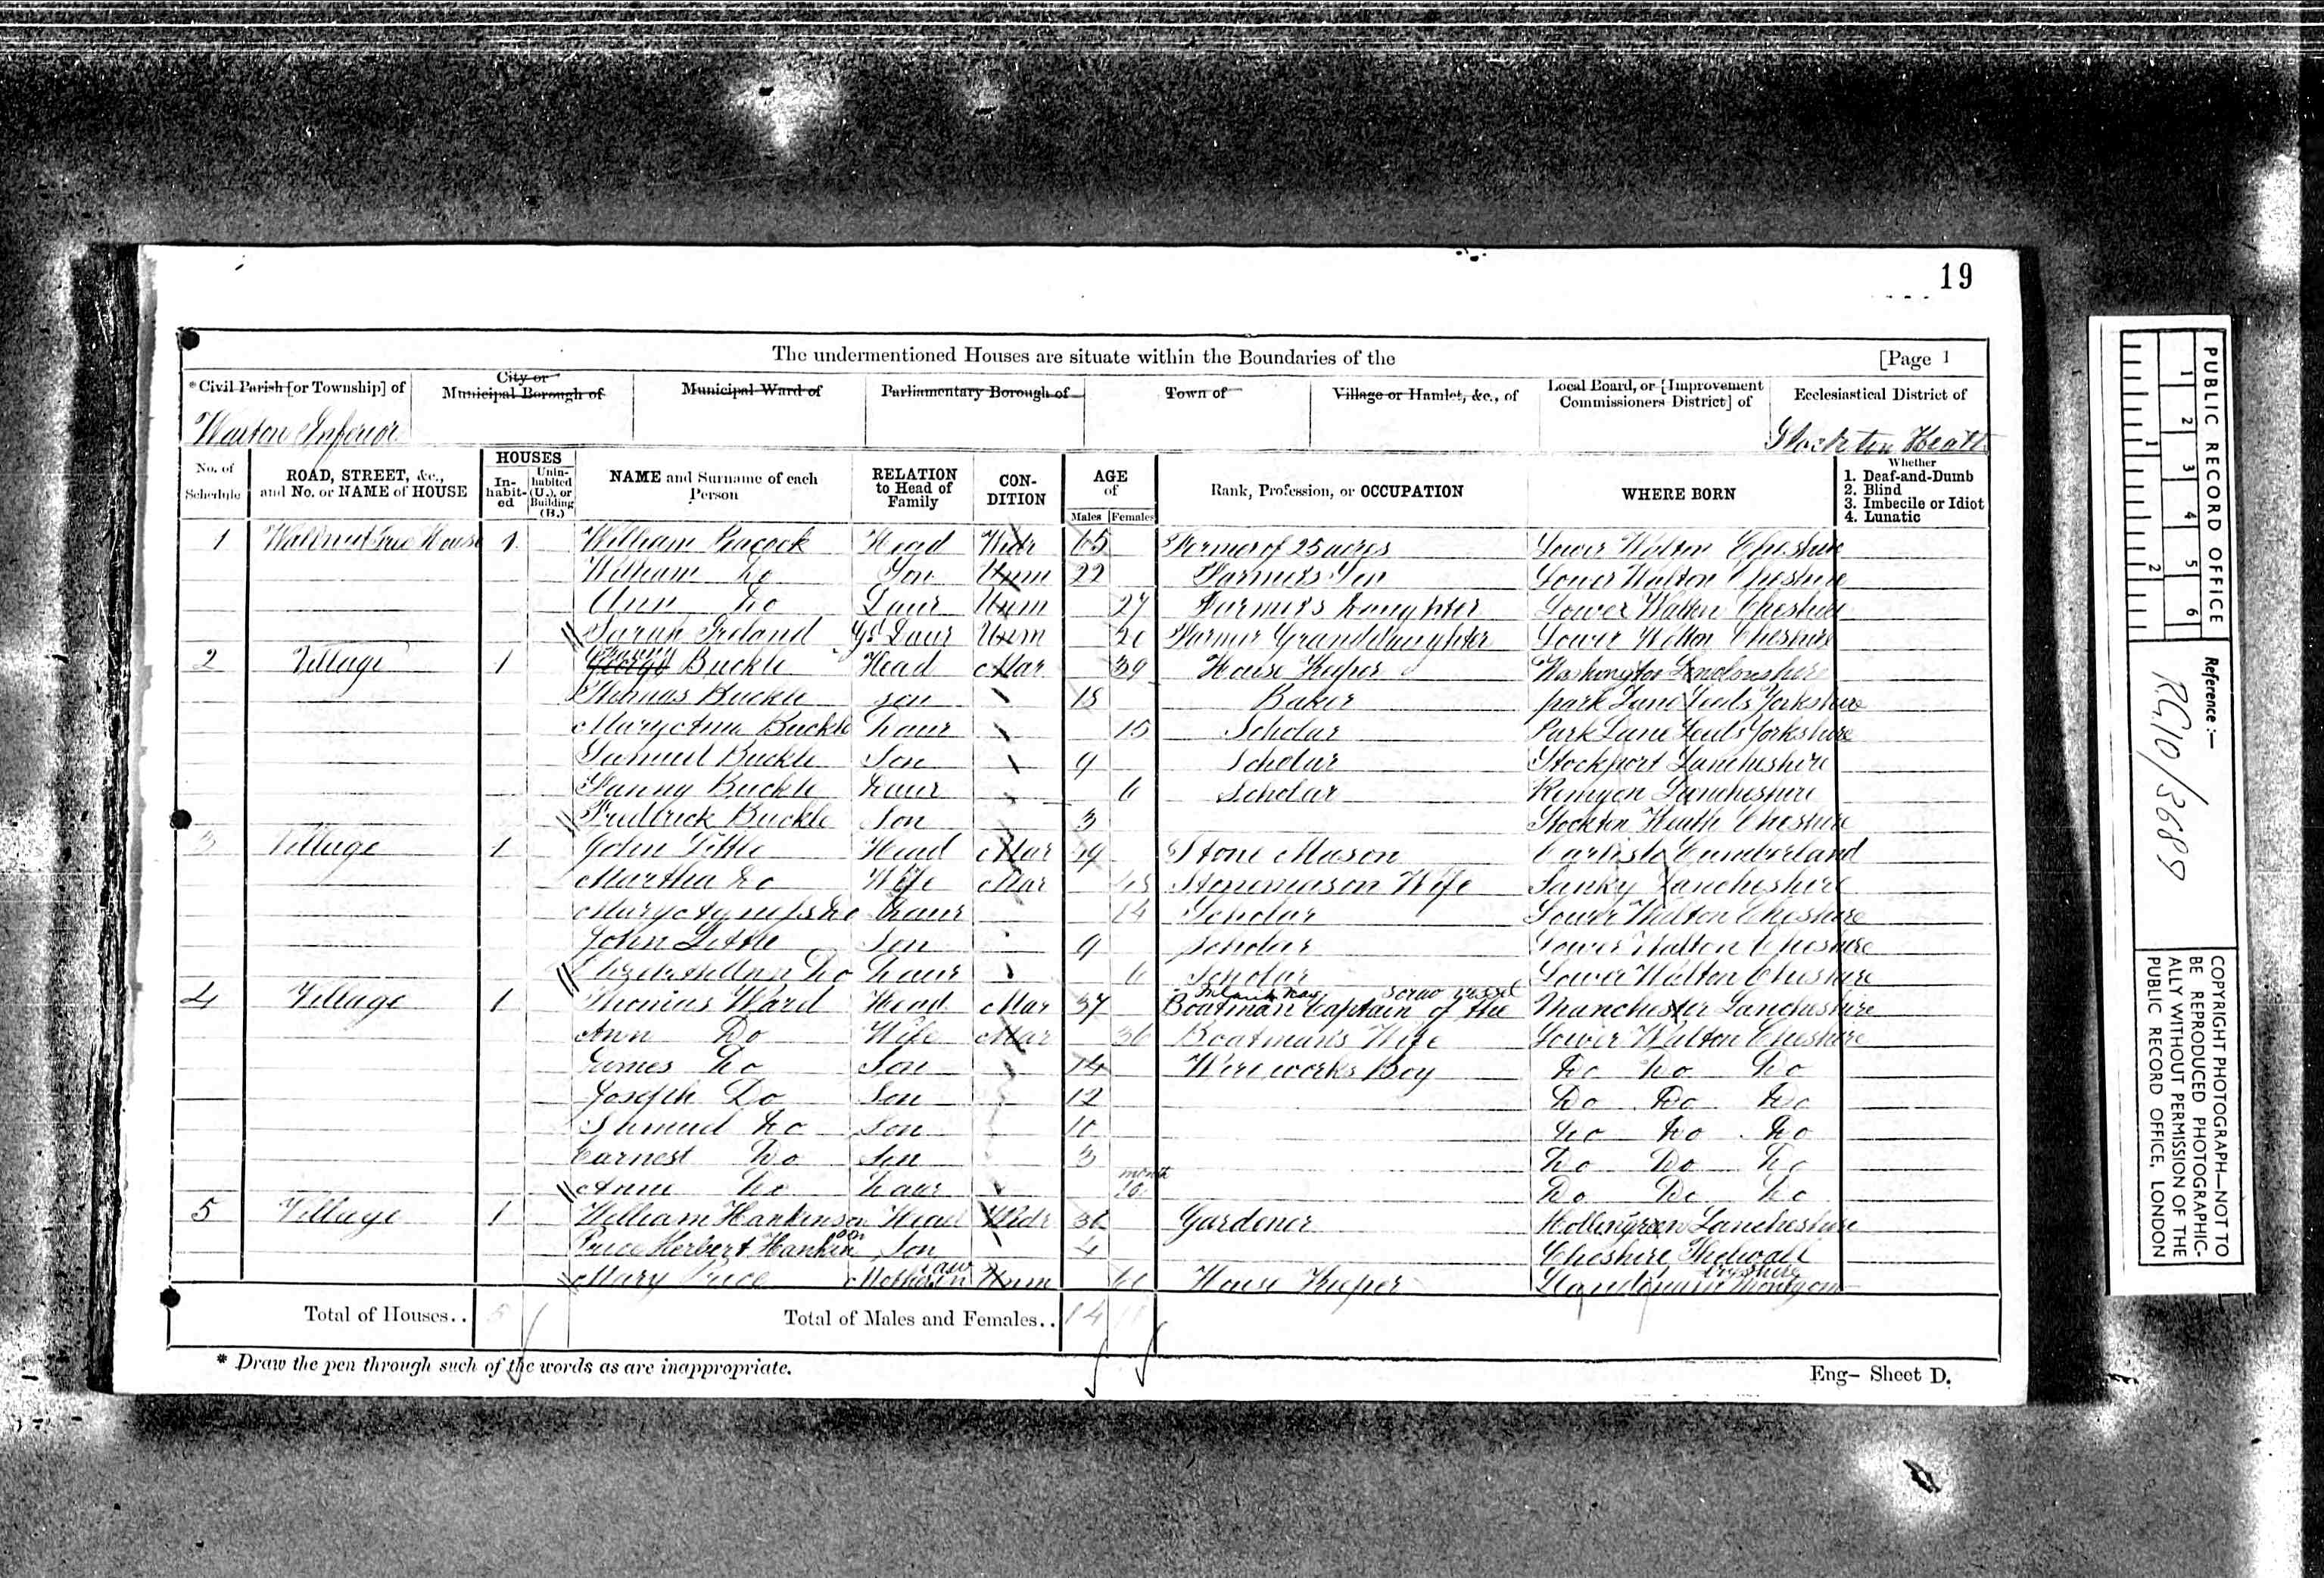 19
The undermentioned Houses are situate within the Boundaries of the [Page 1
*Civil Parish [or Township] of City or Municipal Borough of Municipal Ward of Parliamentary Borough of Town of Village or Hamlet, &c., of Local Board, or [Improvement Commissioners District] of Ecclesiastical District of
Walton Inferior Stockton Heath
No. of Schedule ROAD, STREET, &c., and No. or NAME of HOUSE HOUSES Inhabited Uninhabited (U.), or Building (B.) NAME and Surname of each Person RELATION to Head of Family CONDITION AGE of Males Females Rank, Profession, or OCCUPATION WHERE BORN Whether 1. Deaf-and-Dumb 2. Blind 3. Imbecile or Idiot 4. Lunatic
1 Wallnut Tree House 1 William Peacock Head Widr 65 Farmer of 25 acres Lower Walton Cheshire
William Do Son Unm 22 Farmer's Son Lower Walton Cheshire
Ann Do Daur Unm 27 Farmer's Daughter Lower Walton Cheshire
Sarah Ireland Gd Daur Unm 20 Farmer Granddaughter Lower Walton Cheshire
2 Village 1 Buckle Head Mar 39 House Keeper
Thomas Buckle son 18 Baker park Lane Leeds Yorkshire
Mary Ann Buckle Daur 15 Scholar Park Lane Leeds Yorkshire
Samuel Buckle Son 9 Scholar Stockport Lancheshire
Fanny Buckle Daur 6 Scholar Kenyon Lancheshire
Fredbrick Buckle Son 3 Stockton Heath Cheshire
3 Village 1 John Little Head Mar Stone Mason Carlisle Cumberland
Martha Do Wife Mar Stonemason Wife Sanky Lancheshire
Mary Agness Do Daur 14 Scholar Lower Walton Cheshire
John Little Son 9 Scholar Lower Walton Cheshire
Elizabeth Ann Do Daur 6 Scholar Lower Walton Cheshire
4 Village 1 Thomas Ward Head Mar 37 Inland Nav Boatman Captain of the screw vessel Manchester Lancheshire
Ann Do Wife Mar 36 Boatman's Wife Lower Walton Cheshire
James Do Son 14 Wire works Boy Do Do Do
Joseph Do Son 12 Do Do Do
Shmuel Do Son 10 Do Do Do
Earnest Do Son 3 Do Do Do
Anne Do Daur month 10 Do Do Do
5 Village 1 William Hankinson Head Widr 36 Gardener Hollingreen Lancheshire
Price Herbert Hankinson Son 4 Cheshire Thelwall
Mary Price Mother in law Unm House Keeper
Total of Houses.. 5 Total of Males and Females.. 14 11
* Draw the pen through such of the words as are inappropriate. Eng- Sheet D.
PUBLIC RECORD OFFICE
1 2 3 4 5 6
1 2
Reference :-
RG10/3689
COPYRIGHT PHOTOGRAPH—NOT TO
BE REPRODUCED PHOTOGRAPHIC-
ALLY WITHOUT PERMISSION OF THE
PUBLIC RECORD OFFICE, LONDON